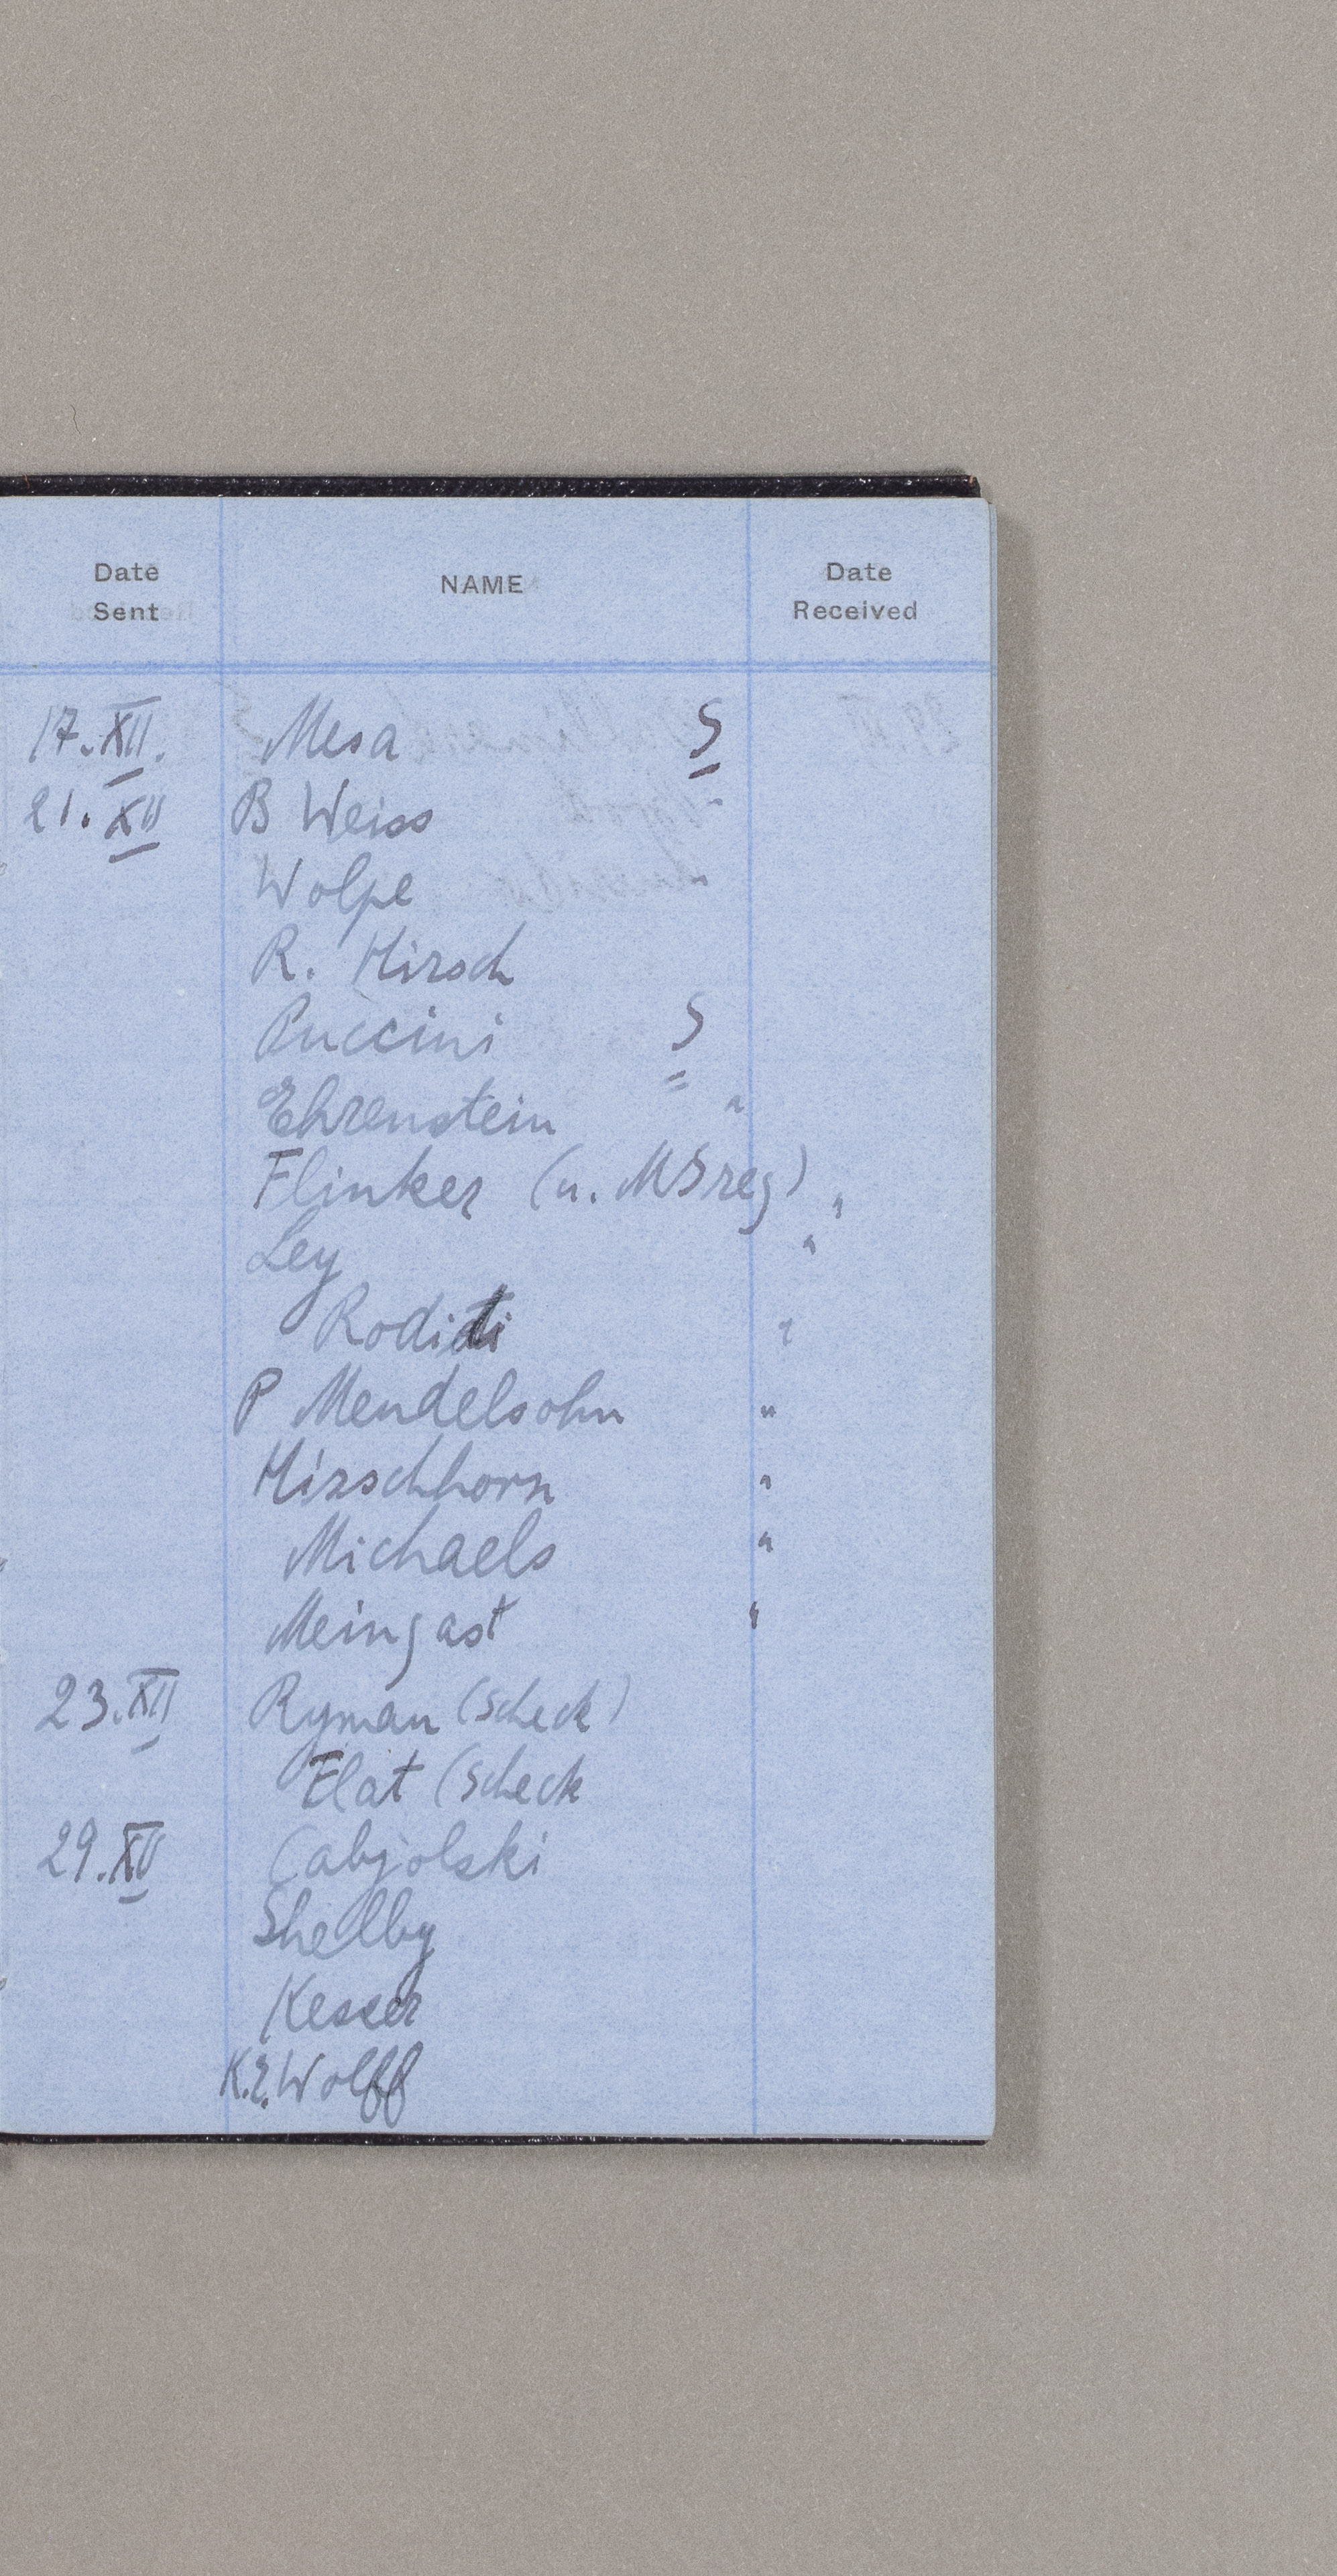 Date Sent NAME Date Received
17.XII. Mesa S
21.XII B Weiss
Wolpe
R. Hirsch
Puccini S
Ehrenstein "
Flinker (u. MS reg) "
Ley "
Roditi "
P Mendelsohn "
Hirschhorn "
Michaels "
Meingast "
23.XII Ryman (Scheck)
Flat (Scheck
29.XII Cabjolski
Shelby
Kesser
K.E. Wolff